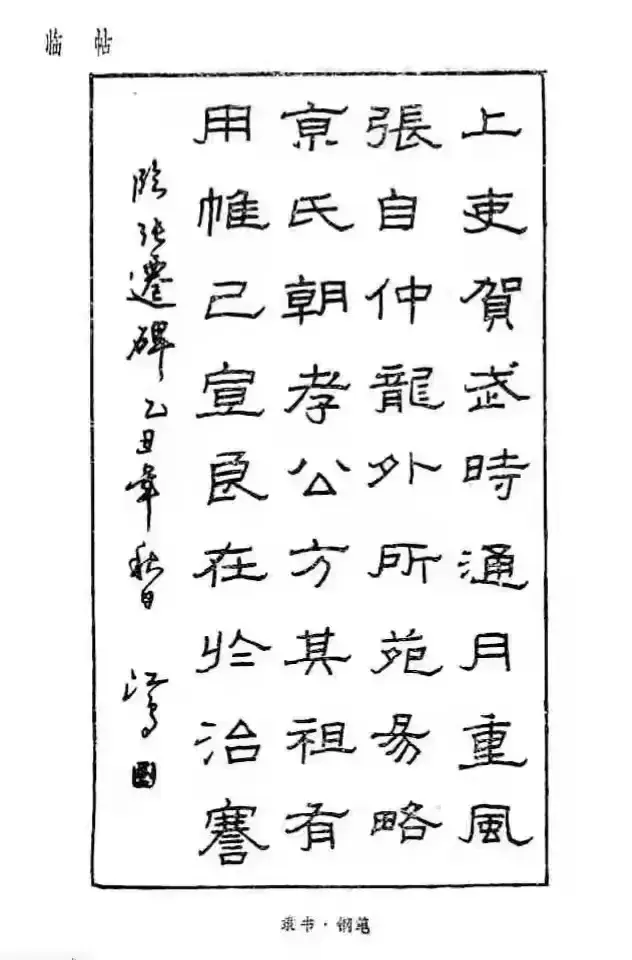 临帖
上吏賀武時通月重風
張自仲龍外所苑易略
京氏朝孝公方其祖有
用帷己宣良在於治謇
臨張遷碑乙丑年秋日
隶书·钢笔